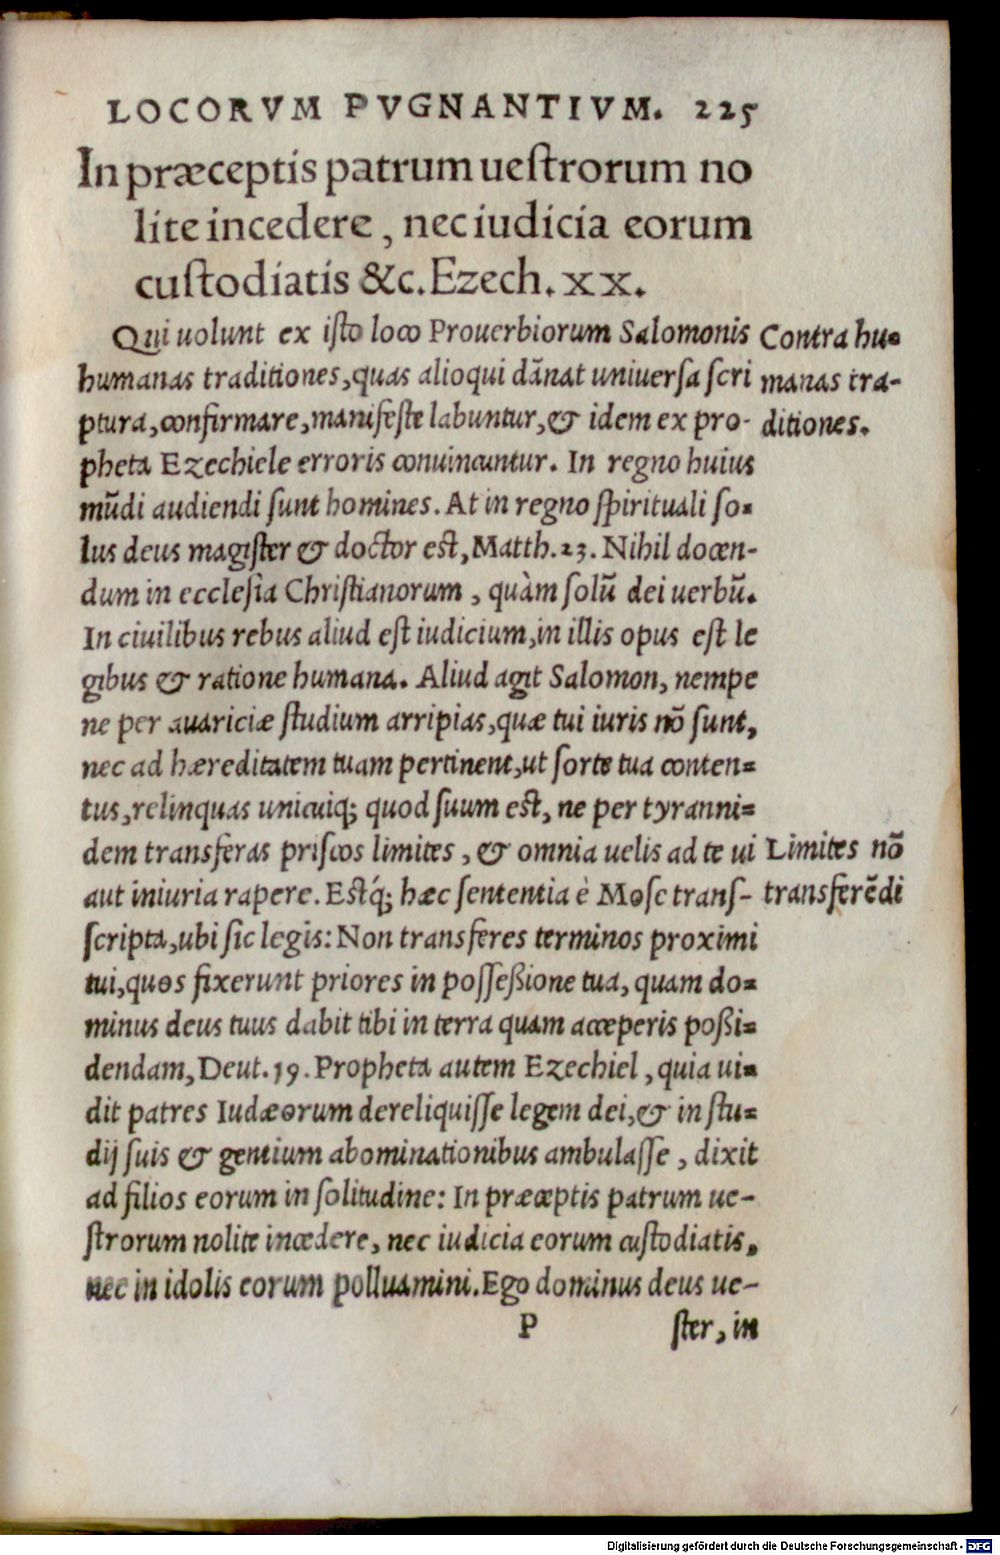 LOCORVM PVGNANTIVM. 225
In præceptis patrum uestrorum no
lite incedere, nec iudicia eorum
custodiatis &c. Ezech. XX.
Qui uolunt ex isto loco Prouerbiorum Salomonis
humanas traditiones, quas alioqui dānat uniuersa scri
ptura, confirmare, manifeste labuntur, & idem ex pro-
pheta Ezechiele erroris conuincuntur. In regno huius
mūdi audiendi sunt homines. At in regno spirituali so-
lus deus magister & doctor est, Matth. 23. Nihil docen-
dum in ecclesia Christianorum, quàm solū dei uerbū.
In ciuilibus rebus aliud est iudicium, in illis opus est le
gibus & ratione humana. Aliud agit Salomon, nempe
ne per auariciæ studium arripias, quæ tui iuris nō sunt,
nec ad hæreditatem tuam pertinent, ut sorte tua conten-
tus, relinquas unicuiq; quod suum est, ne per tyranni-
dem transferas priscos limites, & omnia uelis ad te ui
aut iniuria rapere. Estq́; hæc sententia è Mose trans-
scripta, ubi sic legis: Non transferes terminos proximi
tui, quos fixerunt priores in possessione tua, quam do-
minus deus tuus dabit tibi in terra quam acceperis poßi-
dendam, Deut. 19. Propheta autem Ezechiel, quia ui-
dit patres Iudæorum dereliquisse legem dei, & in stu-
dij suis & gentium abominationibus ambulasse, dixit
ad filios eorum in solitudine: In præceptis patrum ue-
strorum nolite incedere, nec iudicia eorum custodiatis,
nec in idolis eorum polluamini. Ego dominus deus ue-
P ster, in
Contra hu-
manas tra-
ditiones.
Limites nō
transferēdi
Digitalisierung gefördert durch die Deutsche Forschungsgemeinschaft - DFG